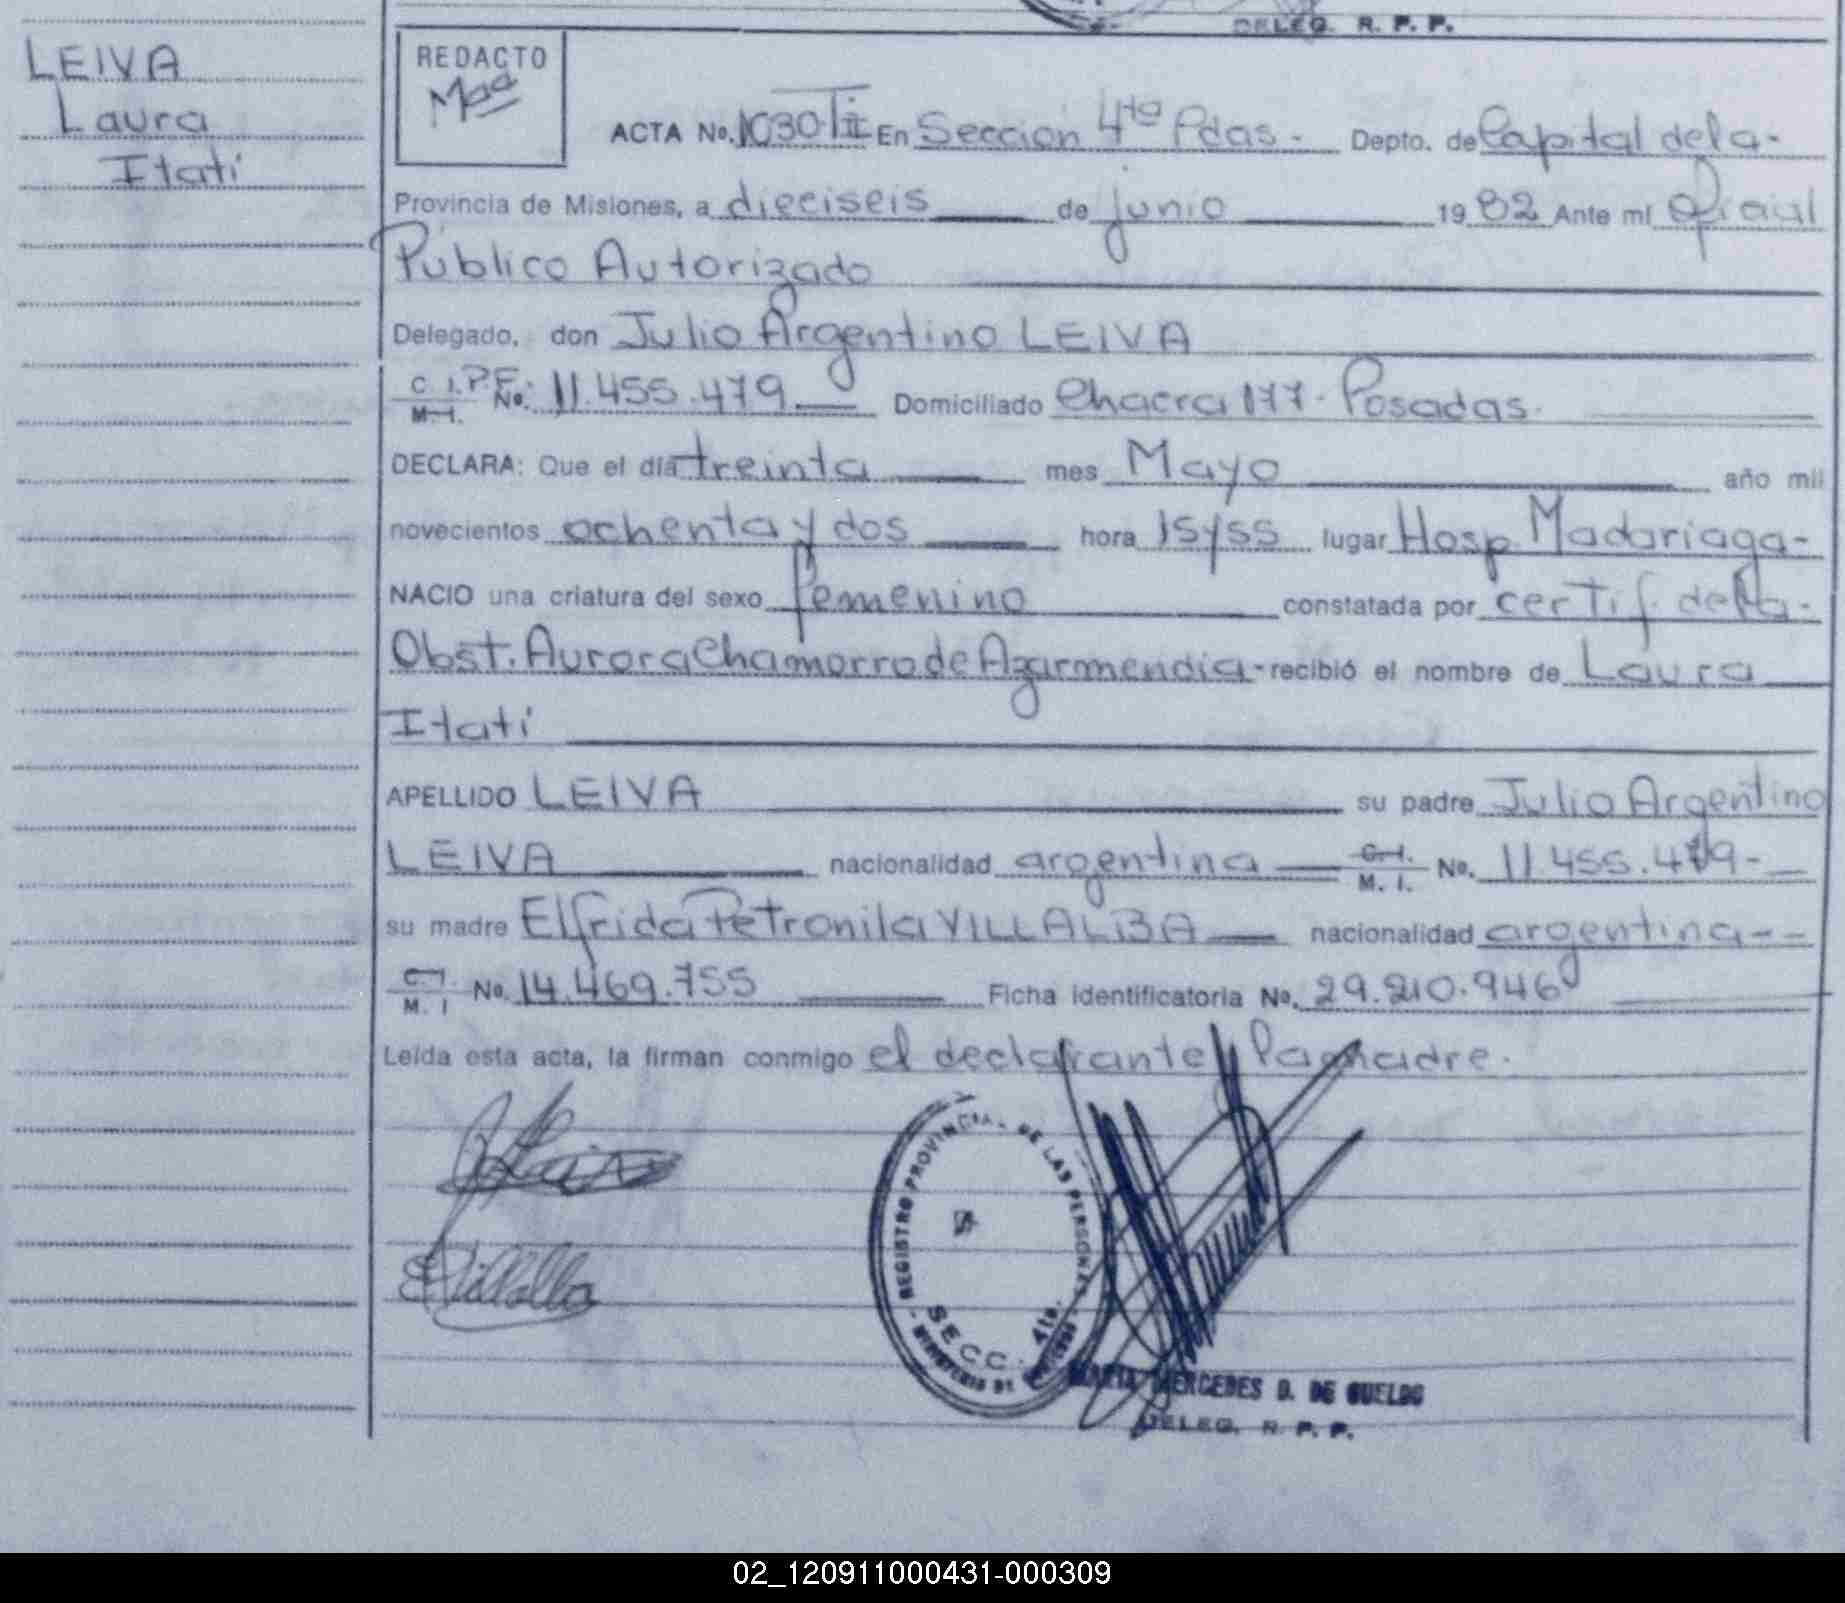 DELEG. R. P. P.
LEIVA
Laura
Itatí
REDACTO
ACTA No. 1030-TII En Seccion 4ta Pdas.- Depto. de Capital de la-
Provincia de Misiones, a dieciseis de junio 1982 Ante mí Oficial
Público Autorizado
Delegado, don Julio Argentino LEIVA
C I.P.F. No. 11.455.479 Domiciliado Chacra 177- Posadas.
M.I.
DECLARA: Que el día treinta mes Mayo año mil
novecientos ochenta y dos hora 15y55 lugar Hosp. Madariaga-
NACIO una criatura del sexo femenino constatada por certif. de la-
Obst. Aurora Chamorro de Azarmendia- recibió el nombre de Laura
Itatí
APELLIDO LEIVA su padre Julio Argentino
LEIVA nacionalidad argentina C.I. M. I. No. 11.455.479-
su madre Elfrida Petronila VILLALBA nacionalidad argentina--
C.I. M. I No. 14.469.755 Ficha identificatoria No. 29.210.946
Leída esta acta, la firman conmigo el declarante y la madre.
EVillalba
REGISTRO PROVINCIAL DE LAS PERSONAS
SECC. 4ta.
MINISTERIO DE GOBIERNO
MARIA MERCEDES D. DE GUELDO
DELEG. R. P. P.
02_120911000431-000309